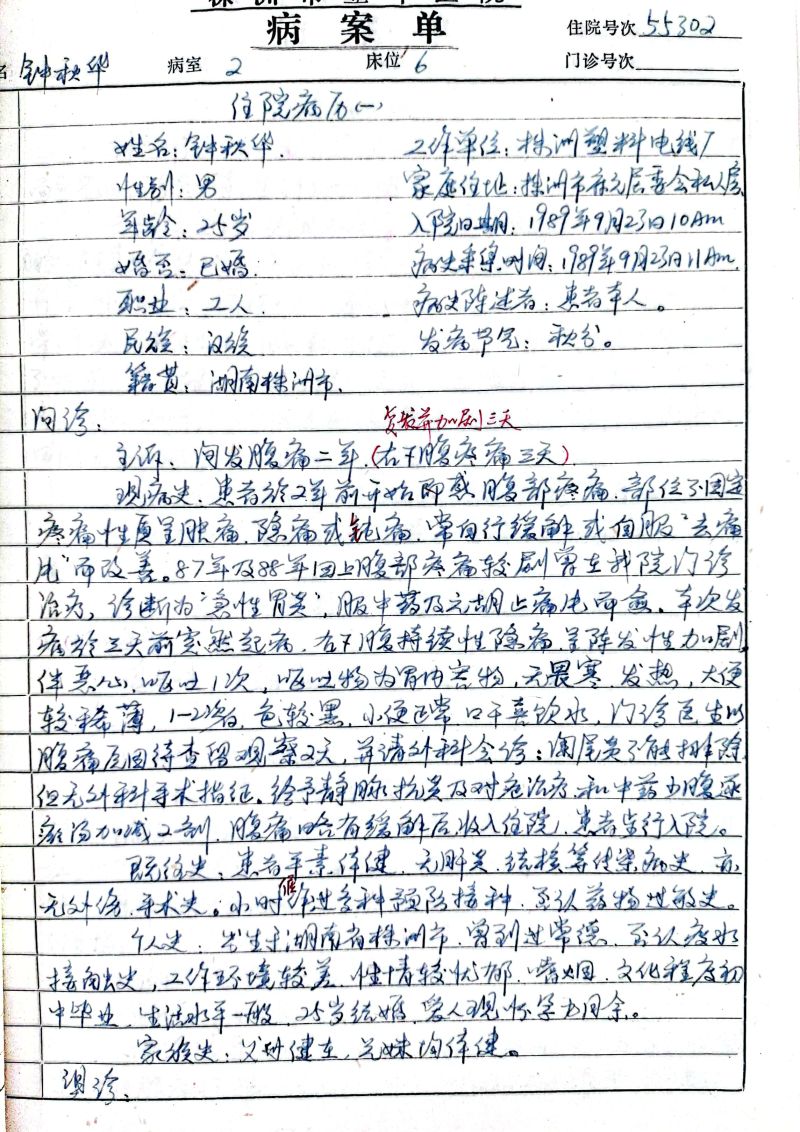 病案单
住院号次 55302
钟秋华 病室 2 床位 6 门诊号次
住院病历(一)
姓名:钟秋华. 工作单位:株洲塑料电线厂
性别:男 家庭住址:株洲市 居委会私房
年龄:25岁 入院日期:1989年9月23日10Am
婚否:已婚. 病史采集时间:1989年9月23日11Am.
职业:工人. 病史陈述者:患者本人。
民族:汉族 发病节气:秋分。
籍贯:湖南株洲市.
问诊: 复发并加剧三天
主诉.间发腹痛二年.(右下腹疼痛三天)
现病史.患者于2年前开始即感腹部疼痛.部位不固定
疼痛性质呈胀痛.隐痛或钝痛.常自行缓解或自服“去痛
片”而改善。87年及88年因上腹部疼痛较剧曾在我院门诊
治疗,诊断为“急性胃炎”,服中药及元胡止痛片而愈。本次发
病于三天前突然起病.右下腹持续性隐痛.呈阵发性加剧
伴恶心.呕吐1次,呕吐物为胃内容物,无畏寒.发热,大便
较稀薄,1-2次/日,色较黑,小便正常 口干喜饮水,门诊医生以
腹痛原因待查留观察2天,并请外科会诊:阑尾炎不能排除
但无外科手术指征。给予静脉抗炎及对症治疗.和中药少腹逐
瘀汤加减2剂.腹痛略有缓解后收入住院.患者步行入院。
既往史:患者平素体健.无肝炎.结核等传染病史.亦
无外伤.手术史。小时 作过多种预防接种.否认药物过敏史。
个人史:出生于湖南省株洲市.曾到过常德.否认疫水
接触史,工作环境较差.性情较忧郁.嗜烟.文化程度初
中毕业.生活水平一般.25岁结婚.爱人现怀孕 月余。
家族史:父母健在,兄妹均体健。
望诊: